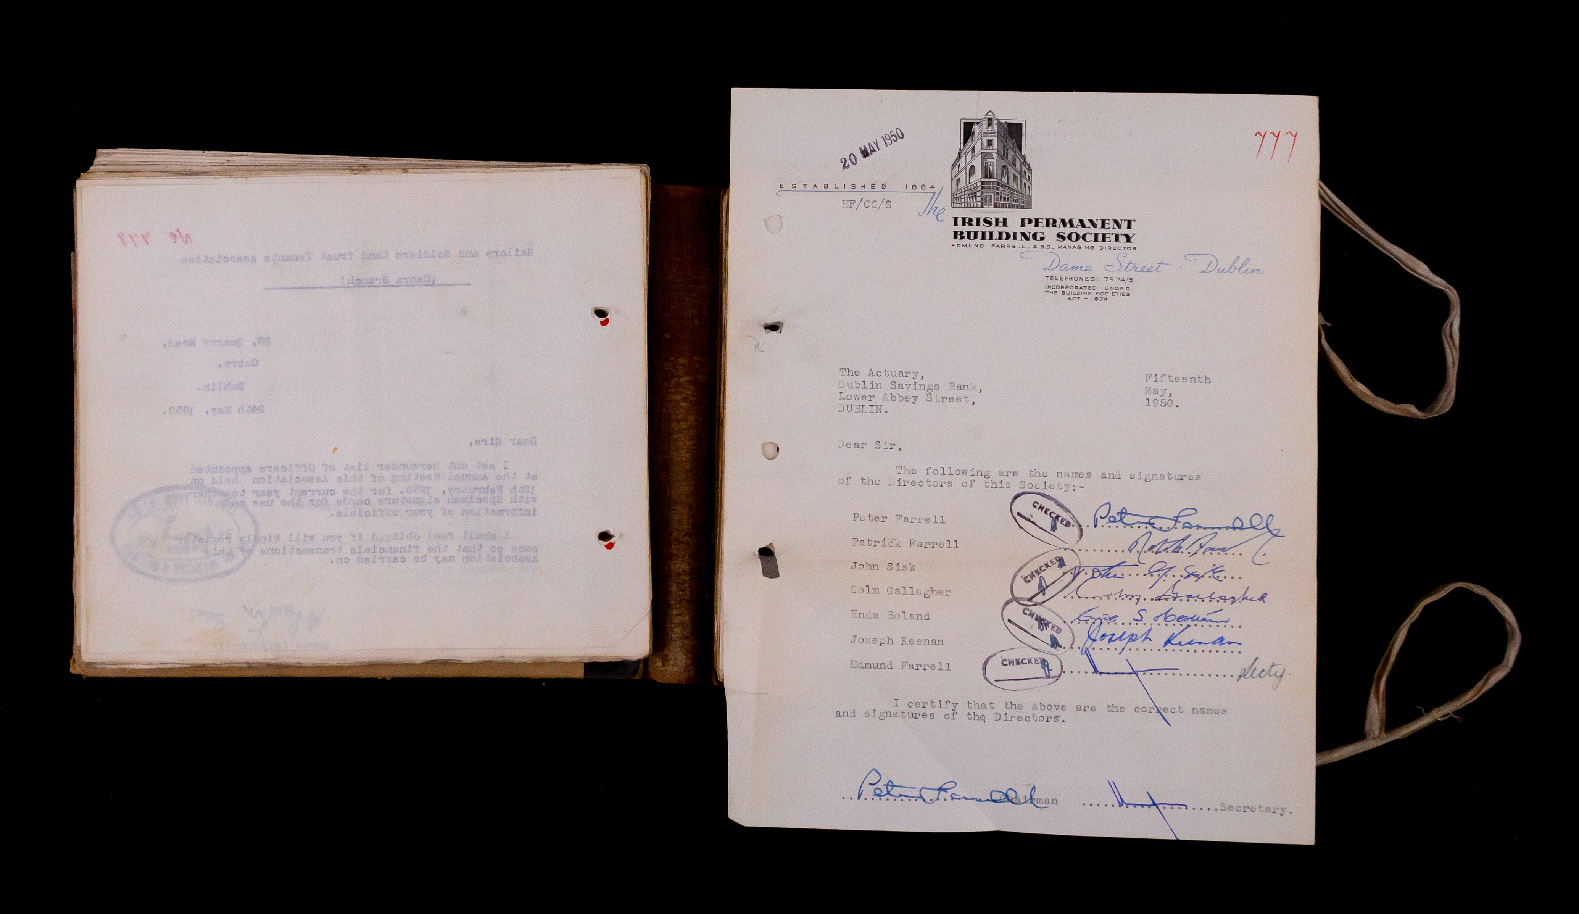 Nº 778
Sailors and Soldiers Land Trust Tenants Association
(Cabra Branch)
89, Quarry Road,
Cabra,
Dublin.
24th May, 1950.
Dear Sirs,
I set out hereunder list of Officers appointed
at the Annual Meeting of this Association held on
February, 1950. for the current year together
with Specimen signature cards for the use and
information of your officials.
I shall feel obliged if you will kindly register
same so that the financials transactions of this
Association may be carried on.
20 MAY 1950
777
ESTABLISHED 1884
EF/CC/S
The
IRISH PERMANENT
BUILDING SOCIETY
EDMUND FARRELL, MANAGING DIRECTOR
Dame Street · Dublin
TELEPHONES:
INCORPORATED UNDER
THE BUILDING SOCIETIES
ACT - 1874
The Actuary,
Dublin Savings Bank,
Lower Abbey Street,
DUBLIN.
Fifteenth
May,
1950.
Dear Sir,
The following are the names and signatures
of the Directors of this Society:-
Peter Farrell CHECKED Peter Farrell
Patrick Farrell
John Sisk CHECKED John G. Sisk
Colm Gallagher Gallagher
Enda Boland CHECKED
Joseph Keenan Joseph Keenan
Edmund Farrell CHECKED Secty.
I certify that the above are the correct names
and signatures of the Directors.
Peter Farrell Chairman Secretary.